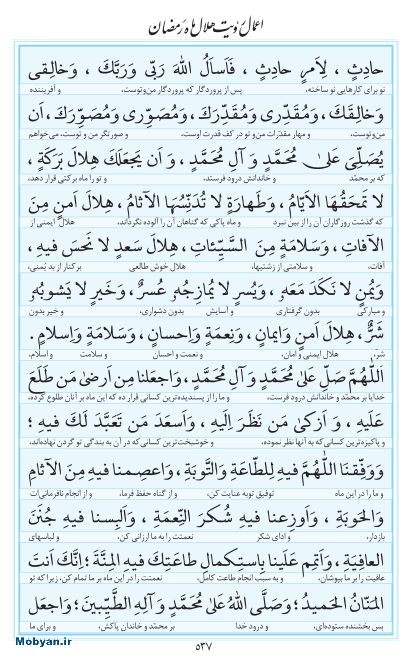 اعمال رؤیت هلال ماه رمضان
حادِثٍ ، لِاَمرٍ حادِثٍ ، فَاَسأَلُ اللهَ رَبّی وَرَبَّكَ ، وَخالِقی
نو برای کارهایی نو ساخته، پس از پروردگار که پروردگار من‌و‌توست، و آفریننده
وَخالِقَكَ، وَمُقَدِّری وَمُقَدِّرَكَ، وَمُصَوِّری وَمُصَوِّرَكَ، اَن
من‌و‌توست، و مهار مقدّرات من‌و تو در کف قدرت اوست، و صورتگر من و توست، می‌خواهم
یُصَلِّیَ عَلیٰ مُحَمَّدٍ وَ آلِ مُحَمَّدٍ ، وَ اَن یَجعَلَكَ هِلالَ بَرَكَةٍ ،
که بر محمّد و خاندانش درود فرستد، و تو را ماه برکتی قرار دهد،
لا تَمحَقُهَا الاَیّامُ، وَطَهارَةٍ لا تُدَنِّسُهَا الآثامُ، هِلالَ اَمنٍ مِنَ
که گذشت روزگاران آن را از بین نبرد و ماه پاکی که گناهان آن را آلوده نگرداند، هلال ایمنی از
الآفاتِ ، وَسَلامَةٍ مِنَ السَّیِّئاتِ ، هِلالَ سَعدٍ لا نَحسَ فیهِ ،
آفات، و سلامتی از زشتیها، هلال خوش طالعی برکنار از بد یُمنی،
وَیُمنٍ لا نَكَدَ مَعَهُ ، وَیُسرٍ لا یُمازِجُهُ عُسرٌ، وَخَیرٍ لا یَشوبُهُ
و مبارکی بدون گرفتاری و آسایش بدون دشواری، و خیر بدون
شَرٌّ، هِلالَ اَمنٍ وَایمانٍ، وَنِعمَةٍ وَاِحسانٍ، وَسَلامَةٍ وَاِسلامٍ.
شر، هلال ایمنی و امان، و نعمت و احسان و سلامت و اسلام.
اَللّهُمَّ صَلِّ عَلیٰ مُحَمَّدٍ وَ آلِ مُحَمَّدٍ، وَاجعَلنا مِن اَرضیٰ مَن طَلَعَ
خدایا بر محمّد و خاندانش درود فرست، و ما را از پسندیده‌ترین کسانی قرار ده که این ماه بر آنان طلوع کرده،
عَلَیهِ ، وَ اَزكیٰ مَن نَظَرَ اِلَیهِ ، وَاَسعَدَ مَن تَعَبَّدَ لَكَ فیهِ ؛
و پاکیزه‌ترین کسانی‌که به آنها نظر نموده، و خوشبخت‌ترین کسانی‌که در آن به بندگی تو گردن نهاده‌اند.
وَوَفِّقنَا اللّهُمَّ فیهِ لِلطّاعَةِ وَالتَّوبَةِ ، وَاعصِمنا فیهِ مِنَ الآثامِ
و ما را در این ماه توفیق توبه عنایت کن، و از گناه حفظ فرما، و از انجام نافرمانی‌ات
وَالحَوبَةِ ، وَاَوزِعنا فیهِ شُكرَ النِّعمَةِ ، وَاَلبِسنا فیهِ جُنَنَ
بازدار، و ادای شکر نعمتت را به ما ارزانی کن، و لباسهای
العافِیَةِ، وَاَتمِم عَلَینا بِاستِكمالِ طاعَتِكَ فیهِ المِنَّةَ ؛ اِنَّكَ اَنتَ
عافیت را بر ما بپوشان، و به سبب انجام طاعت کامل، نعمتت را در این ماه بر ما تمام کن، زیرا که تو
المَنّانُ الحَمیدُ؛ وَصَلَّی اللهُ عَلیٰ مُحَمَّدٍ وَ آلِهِ الطَّیِّبینَ؛ وَاجعَل
بس بخشنده ستوده‌ای، و درود خدا بر محمّد و خاندان پاکش، و برای ما
۵۳۷
Mobyan.ir